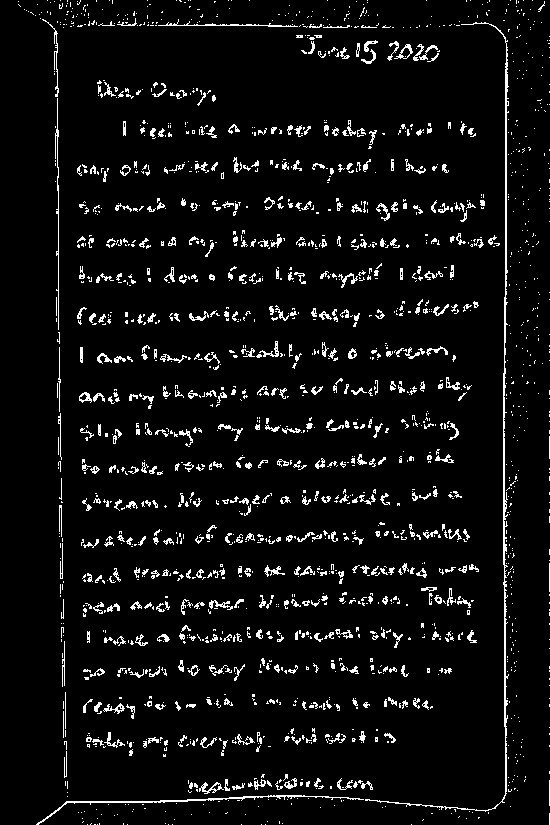 June 15 2020
Dear Diary,
I feel like a writer today. Not like
any old writer, but like myself. I have
so much to say. Often, it all gets caught
at once in my throat and I choke. In those
times I don't feel like myself. I don't
feel like a writer. But today is different
I am flowing steadily like a stream,
and my thoughts are so fluid that they
slip through my throat easily, sliding
to make room for one another in the
stream. No longer a blockade, but a
waterfall of consciousness, frictionless
and translucent to be easily recorded upon
pen and paper. Without friction. Today
I have a frictionless mental sky. I have
so much to say. Now is the time. I'm
ready to I'm ready to make
today my everyday. And so it is
healwithclaire.com